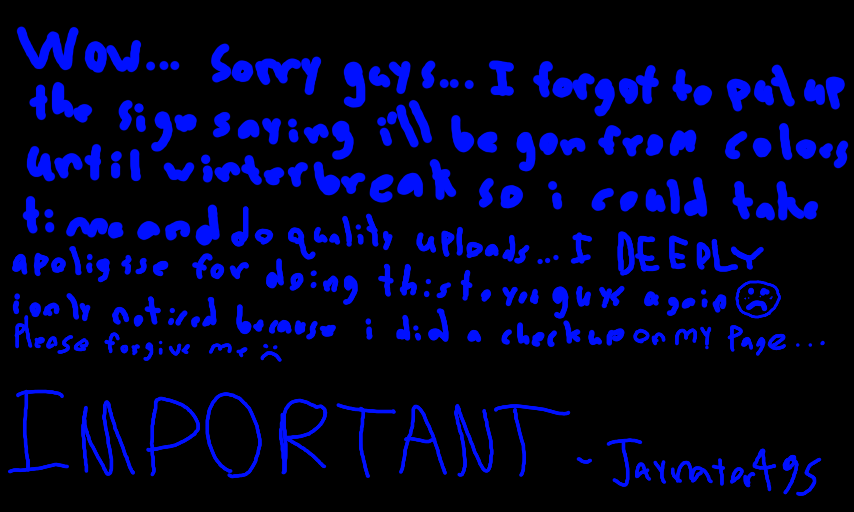 Wow... sorry guys... I forgot to put up
the sign saying i'll be gon from colors
until winter break so i could take
time and do quality uploads... I DEEPLY
apoligisse for doing this to you guys again
i only noticed because i did a checkup on my page...
please forgive me
IMPORTANT
- Jayvrator495